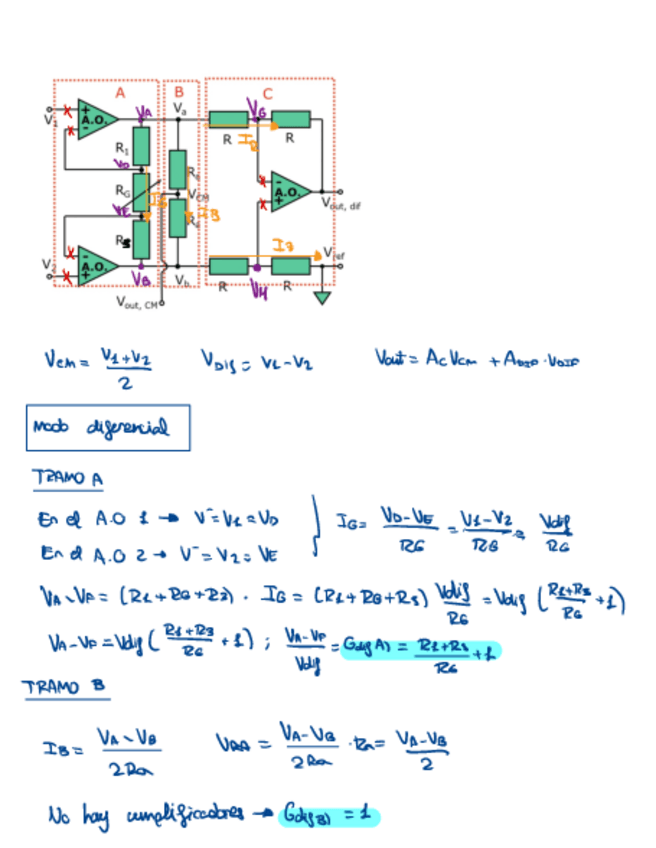 A B C
V₁ + - A.O. VA Va VG
R₁ R R
VD IB
RG Ra VCM A.O. Vout, dif
VE IB
R3 Ra IB Vref
V A.O. VB Vb R VH R
Vout, CM
Vcm = V1+V2 / 2 VDif = V1-V2 Vout = Ac Vcm + ADIF · VDIF
Modo diferencial
TRAMO A
En el A.O 1 → V⁻=V1=VD } IG = VD-VE / RG = V1-V2 / RG = Vdif / RG
En el A.O 2 → V⁻=V2=VE
VA-VB = (R1+RG+R3) · IG = (R1+RG+R3) Vdif / RG = Vdif (R1+R3 / RG + 1)
VA-VB = Vdif (R1+R3 / RG + 1) ; VA-VB / Vdif = Gdif(A) = R1+R3 / RG + 1
TRAMO B
IB = VA-VB / 2Ra VRA = VA-VB / 2Ra · Ra = VA-VB / 2
No hay amplificadores → Gdif(B) = 1